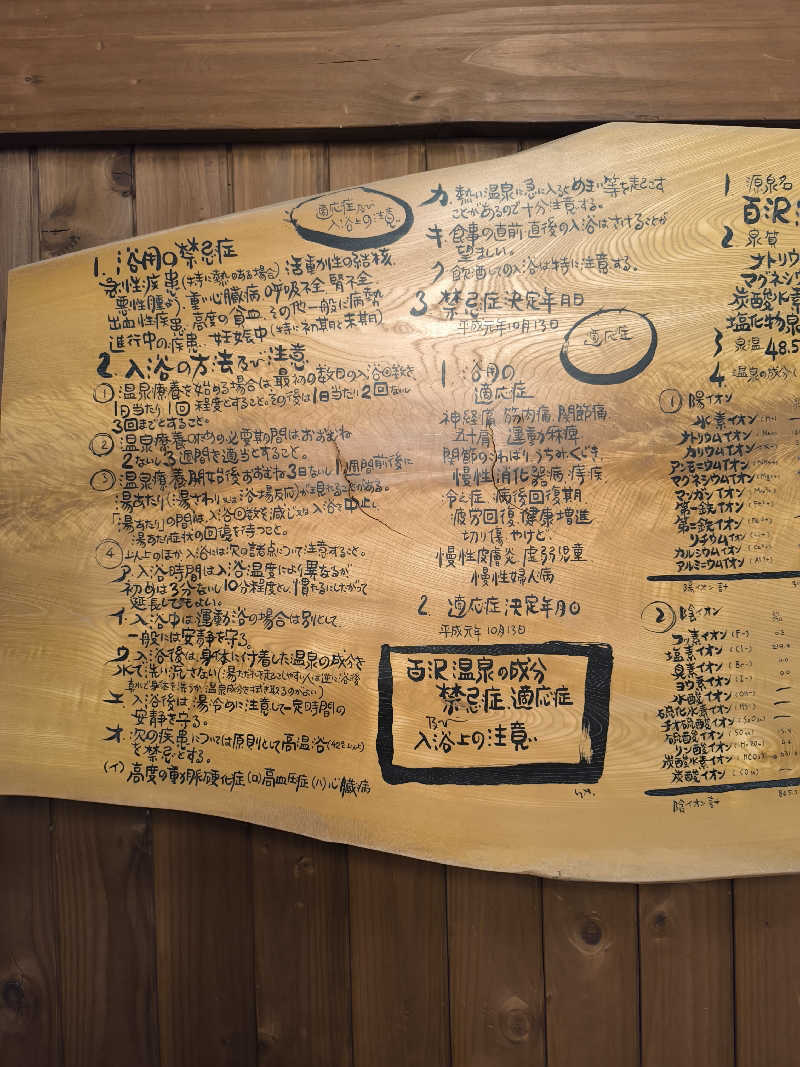 適応症及び
入浴上の注意
1. 浴用の禁忌症
急性疾患(特に熱のある場合)活動性の結核、
悪性腫よう、重い心臓病、呼吸不全、腎不全、
出血性疾患、高度の貧血、その他一般に病勢
進行中の疾患、妊娠中(特に初期と末期)
2. 入浴の方法及び注意
① 温泉療養を始める場合は、最初の数日の入浴回数を
1日当たり1回程度とすること。その後は1日当たり2回ないし
3回までとすること。
② 温泉療養のための必要期間はおおむね
2ないし3週間を適当とすること。
③ 温泉療養開始後おおむね3日ないし1週間前後に
湯あたり(湯さわり又は浴場反応)が現れることがある。
「湯あたり」の間は、入浴回数を減じ又は入浴を中止し、
湯あたり症状の回復を待つこと。
④ 以上のほか、入浴には次の諸点について注意すること。
ア. 入浴時間は入浴温度により異なるが
初めは3分ないし10分程度とし、慣れるにしたがって
延長してもよい。
イ. 入浴中は、運動浴の場合は別として
一般には安静を守る。
ウ. 入浴後は、身体に付着した温泉の成分を
水で洗い流さない(湯ただれを起こしやすい人は逆に浴後
真水で身体を洗うか、温泉成分をふき取るのがよい)
エ. 入浴後は、湯冷めに注意して一定時間の
安静を守る。
オ. 次の疾患については原則として高温浴(42℃以上)
を禁忌とする。
(イ) 高度の動脈硬化症 (ロ)高血圧症 (ハ)心臓病
カ. 熱い温泉に急に入るとめまい等を起こす
ことがあるので十分注意する。
キ. 食事の直前・直後の入浴はさけることが
望ましい。
ク. 飲酒しての入浴は特に注意する。
3. 禁忌症決定年月日
平成元年10月13日
適応症
1. 浴用の
適応症
神経痛 筋肉痛 関節痛
五十肩 運動麻痺
関節のこわばり うちみ くじき
慢性消化器病 痔疾
冷え症 病後回復期
疲労回復 健康増進
切り傷 やけど
慢性皮膚炎 虚弱児童
慢性婦人病
2. 適応症決定年月日
平成元年10月13日
百沢温泉の成分
禁忌症、適応症
及び
入浴上の注意
1 源泉名
百沢
2 泉質
ナトリウ
マグネシウ
炭酸水素
塩化物泉
3 泉温 48.5
4 温泉の成分(
① 陽イオン
水素イオン
ナトリウムイオン
カリウムイオン
アンモニウムイオン
マグネシウムイオン
マンガンイオン
第一鉄イオン
第二鉄イオン
リチウムイオン
カルシウムイオン
アルミニウムイオン
陽イオン計
② 陰イオン
フッ素イオン (F-)
塩素イオン (Cl-)
臭素イオン (Br-)
ヨウ素イオン (I-)
水酸イオン (OH-)
硫化水素イオン (HS-)
チオ硫酸イオン
硫酸イオン
リン酸イオン
炭酸水素イオン
炭酸イオン
陰イオン計